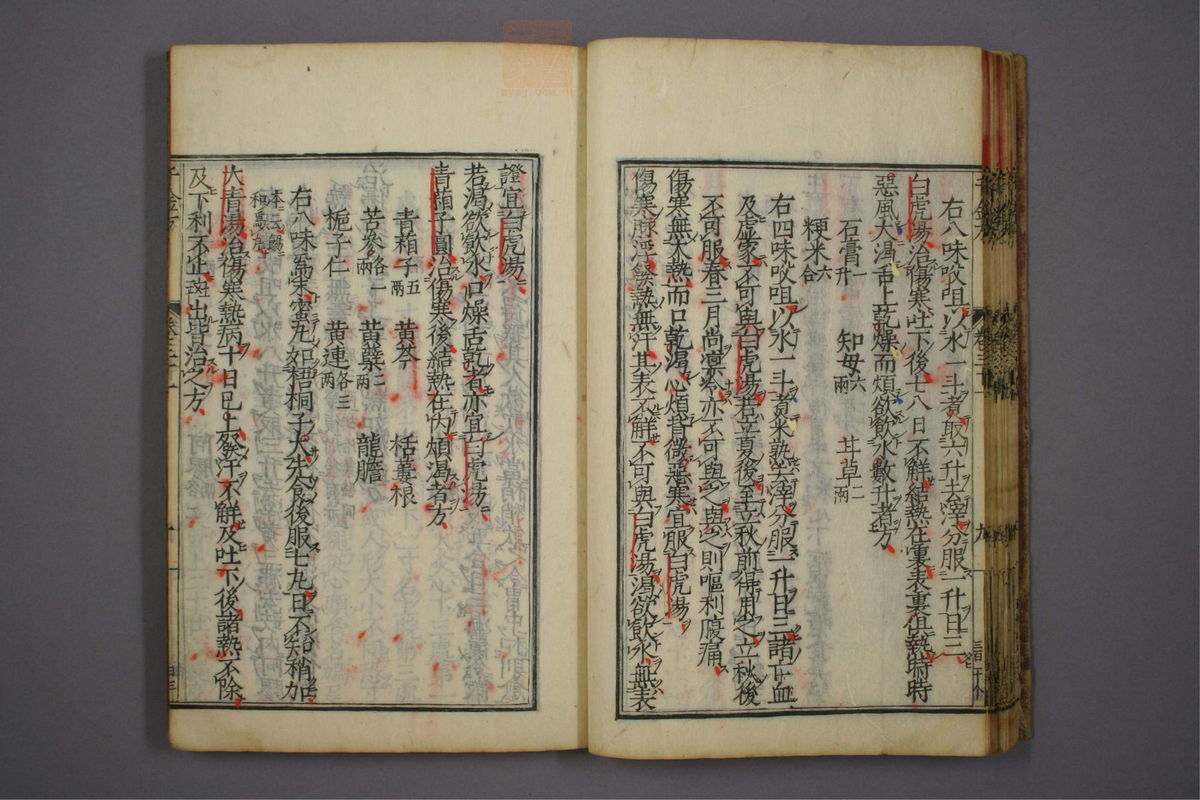 右八味㕮咀以水一斗煮取六升去滓分服一升日三
白虎湯治傷寒吐下後七八日不解結熱在裏表裏俱熱時時
惡風大渴舌上乾燥而煩欲飲水數升者方
石膏一升 知母六兩 甘草二兩
粳米六合
右四味㕮咀以水一斗煮米熟去滓分服一升日三諸亡血
及虛家不可與白虎湯若立夏後至立秋前得用之立秋後
不可服春三月尚凛冷亦不可與之與之則嘔利腹痛
傷寒無大熱而口乾渴心煩背微惡寒宜服白虎湯
傷寒脉浮發熱無汗其表不解不可與白虎湯渴欲飲水無表
證宜白虎湯
若渴欲飲水口燥舌乾者亦宜白虎湯
青葙子圓治傷寒後結熱在內煩渴者方
青葙子五兩 黃芩 栝蔞根
苦參各一兩 黃蘗二兩 龍膽
梔子仁 黃連各三兩
右八味爲末蜜丸如梧桐子大先食後服七丸日三不知稍加
大青湯治傷寒熱病十日已上發汗不解及吐下後諸熱不除
及下利不止斑出皆治之方